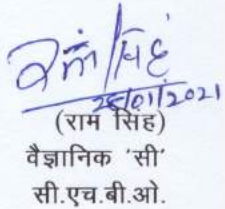 28/01/2021
(राम सिंह)
वैज्ञानिक 'सी'
सी.एच.बी.ओ.